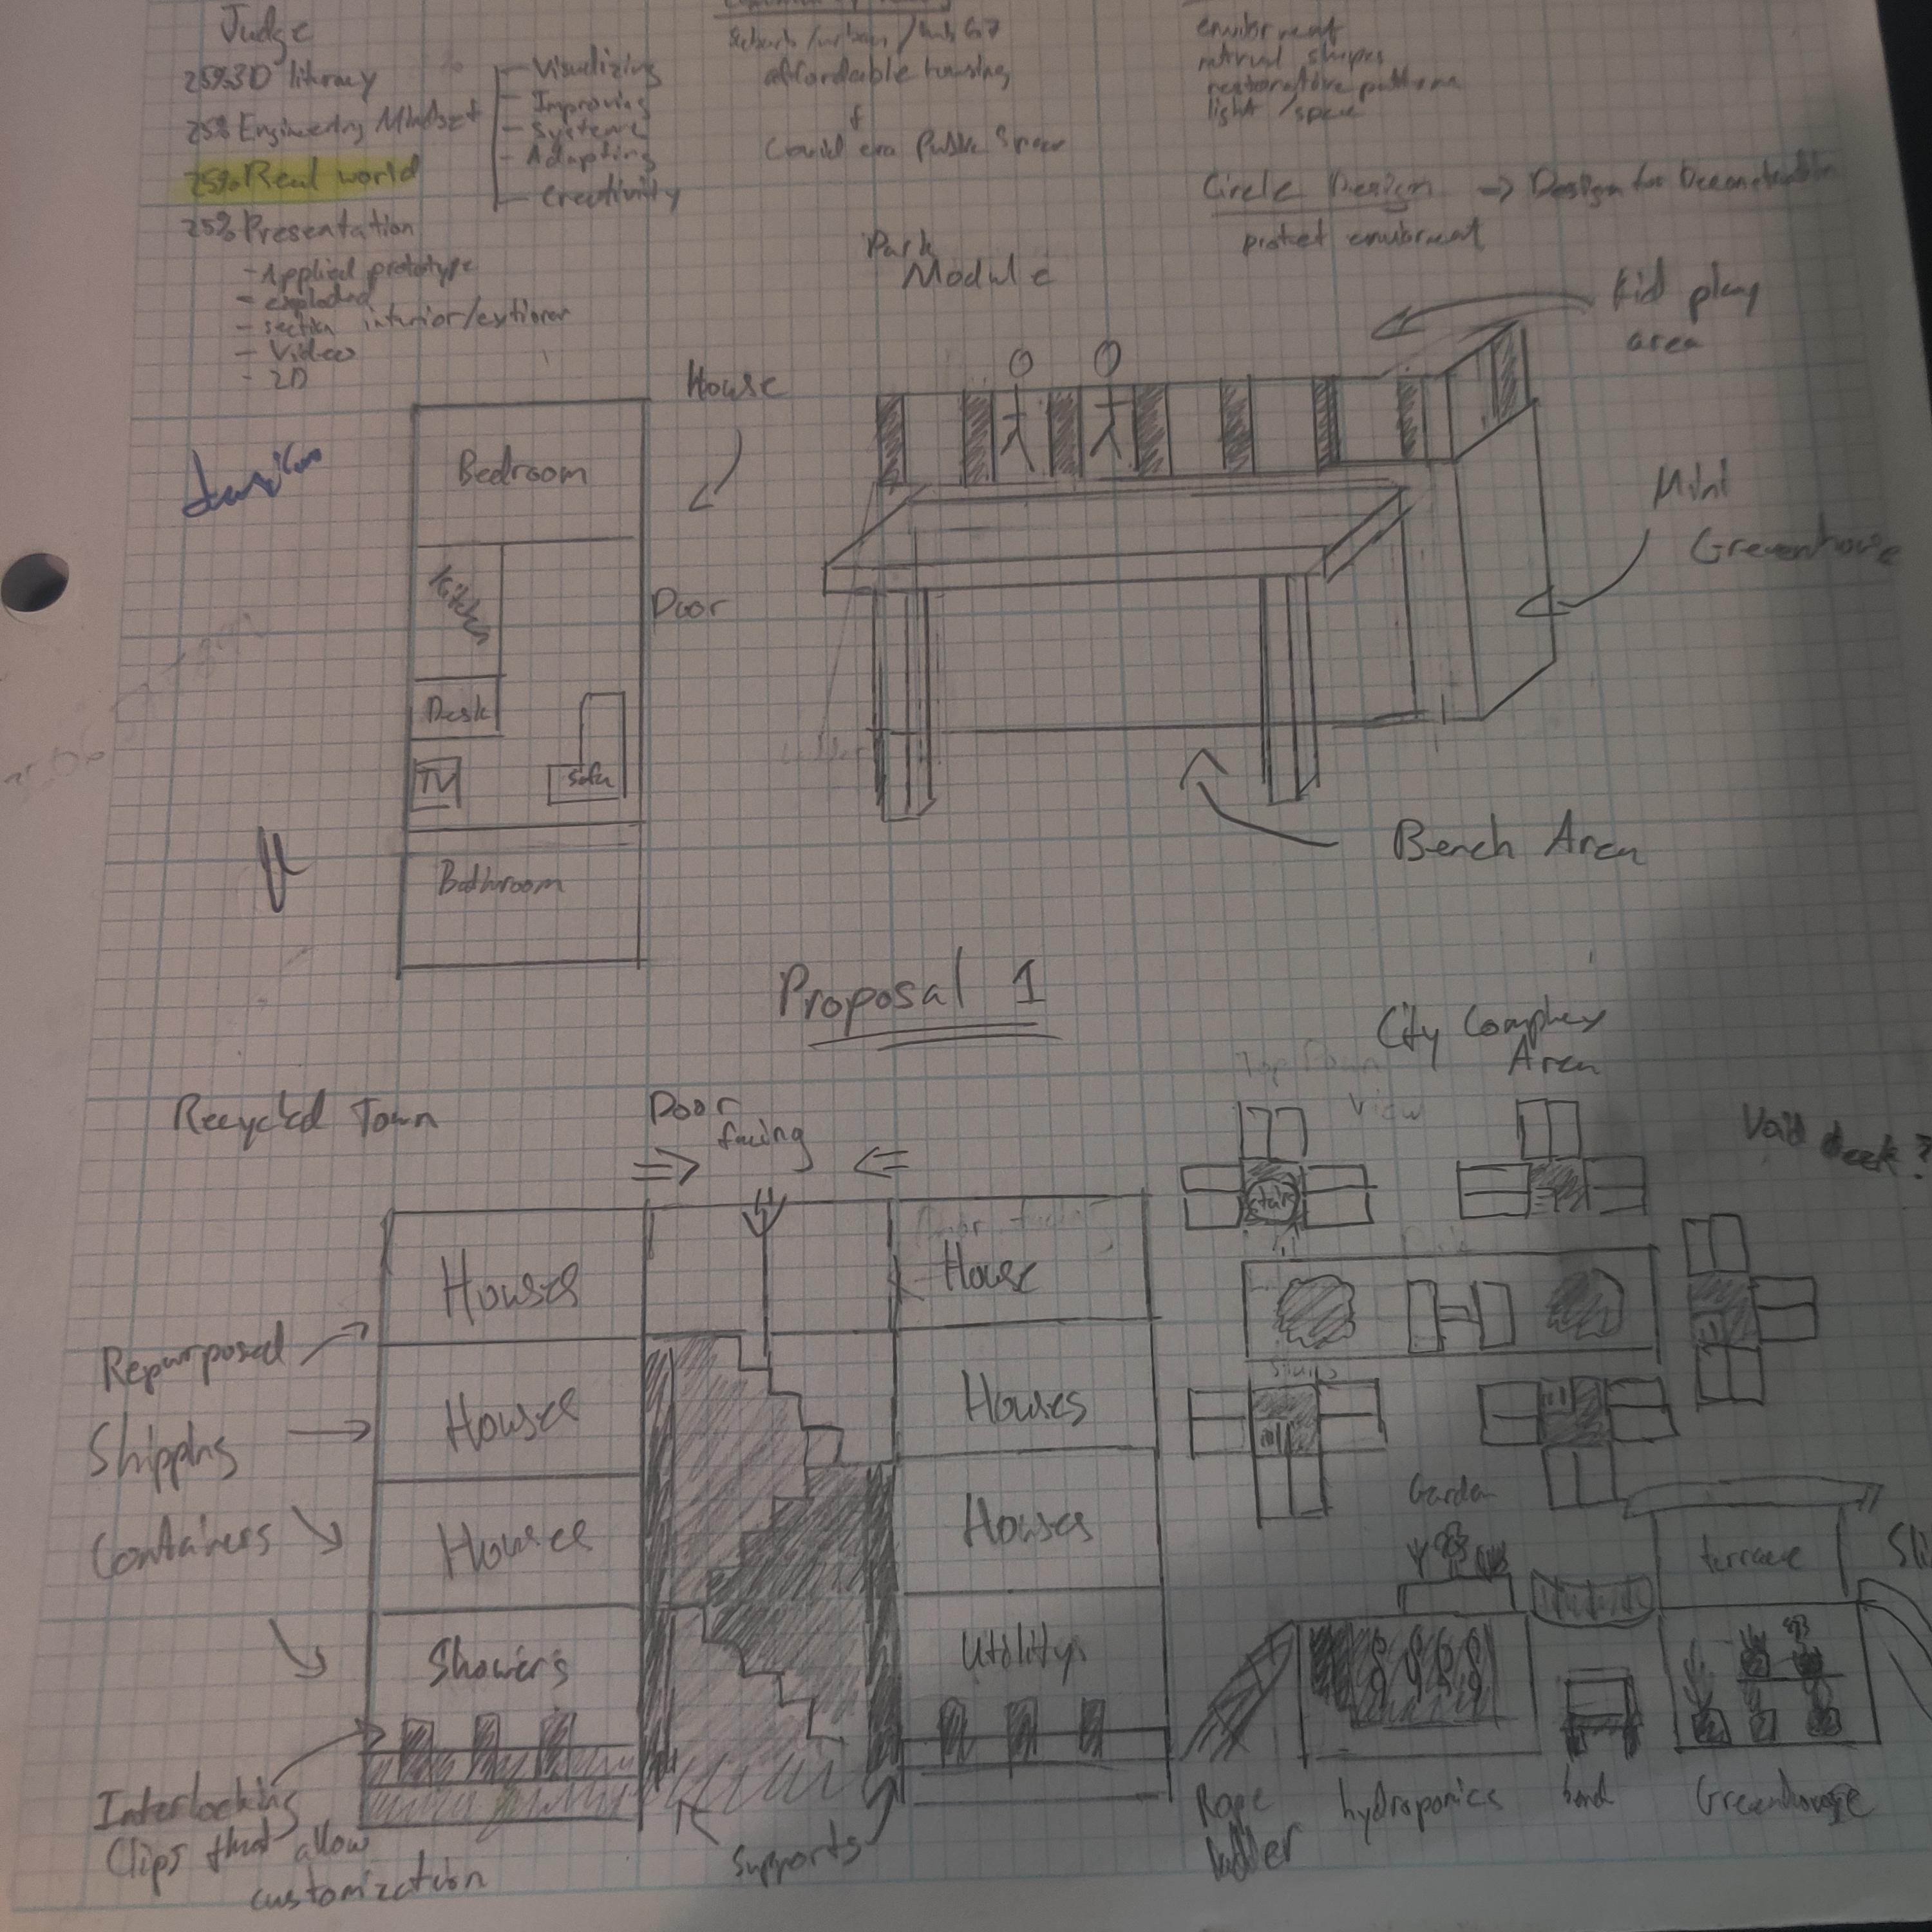 Judge
25% 3D literacy
25% Engineering Mindset
25% Real world
25% Presentation
- Applied prototype
- exploded
- section interior/extiorer
- Video
- 2D
- Visualizing
- Improving
- Systems
- Adapting
- Creativity
affordable housing
&
Covid era Public Space
envibrment
natrual shapes
restorative patterns
light / space
Circle Design -> Design for
protect envibrment
Park
Module
Kid play
area
House
Mini
Greenhouse
Bedroom
Kitchen
Door
Desk
TV
Sofa
Bathroom
Bench Area
Proposal 1
City Complex
Area
Top Down
View
Recycled Town
Door
facing
Void deck?
Stairs
Houses
House
Repurposed
Shipping
Containers
Houses
Houses
Houses
Houses
Garden
terrace
Showers
Utilitys
Interlocking
Clips that allow
customization
Supports
Rope
ladder
hydroponics
Greenhouse